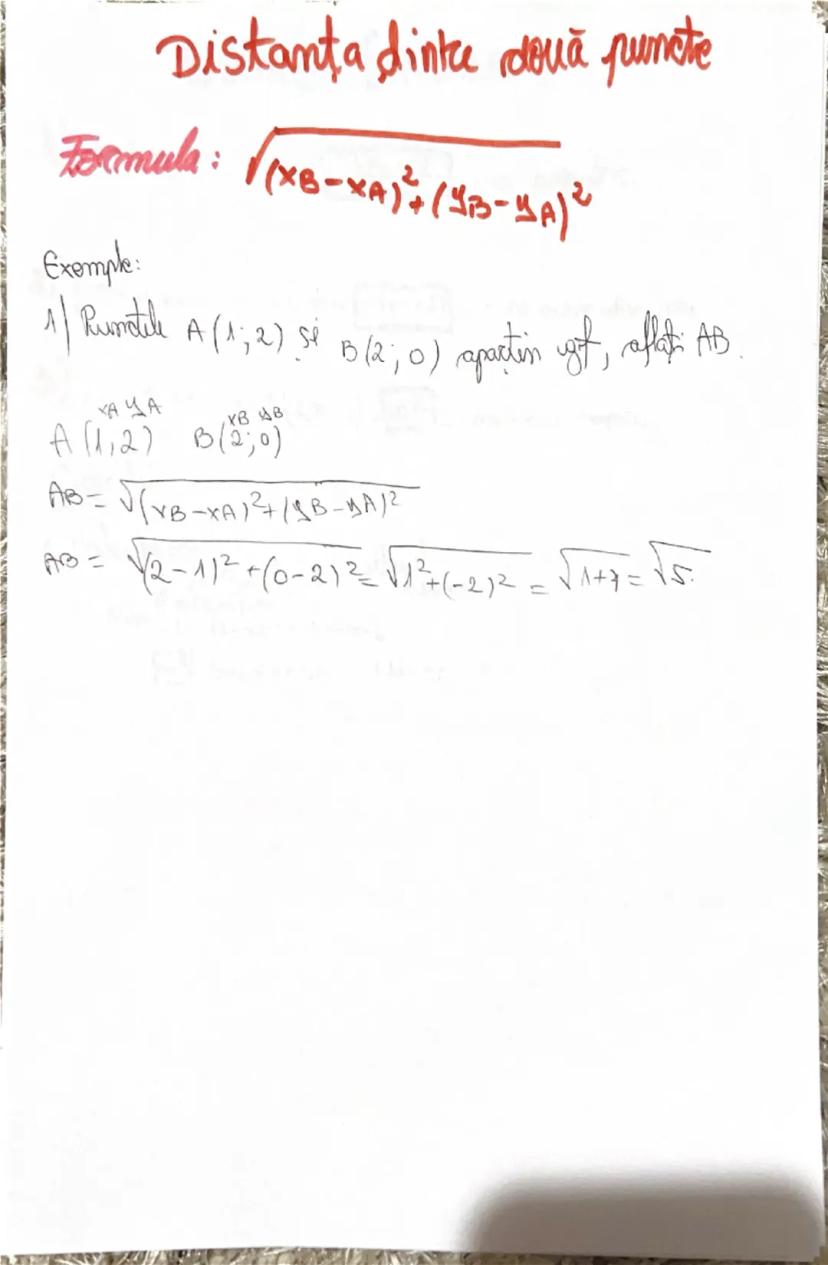 Distanța dintre două puncte
Formula: √(xB-xA)²+(yB-yA)²
Exemple:
1) Punctele A(1;2) și B(2;0) aparțin Ggf, aflați AB.
xA yA xB yB
A(1,2) B(2;0)
AB = √(xB-xA)²+(yB-yA)²
AB = √(2-1)²+(0-2)² = √1²+(-2)² = √1+4 = √5.